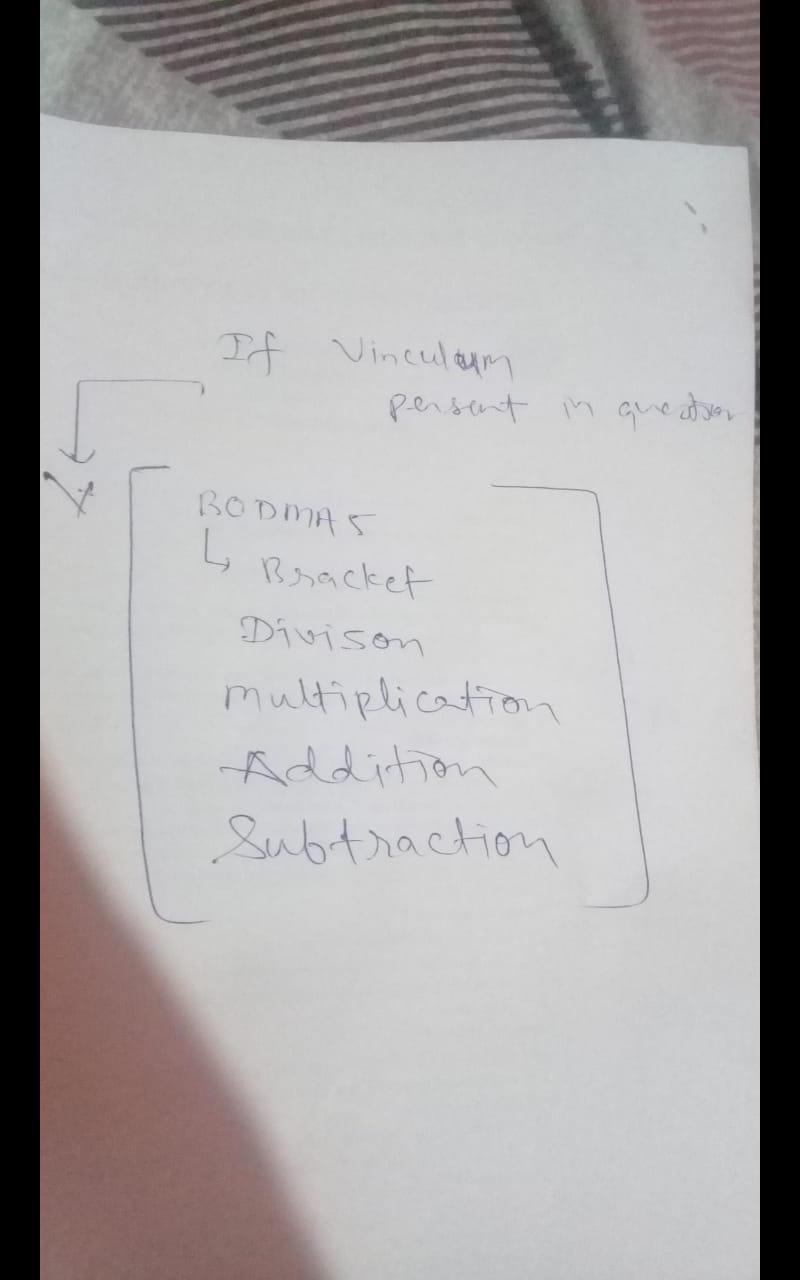 If Vinculum
persent in question
V
BODMAS
↳ Bracket
Divison
multiplication
Addition
Subtraction